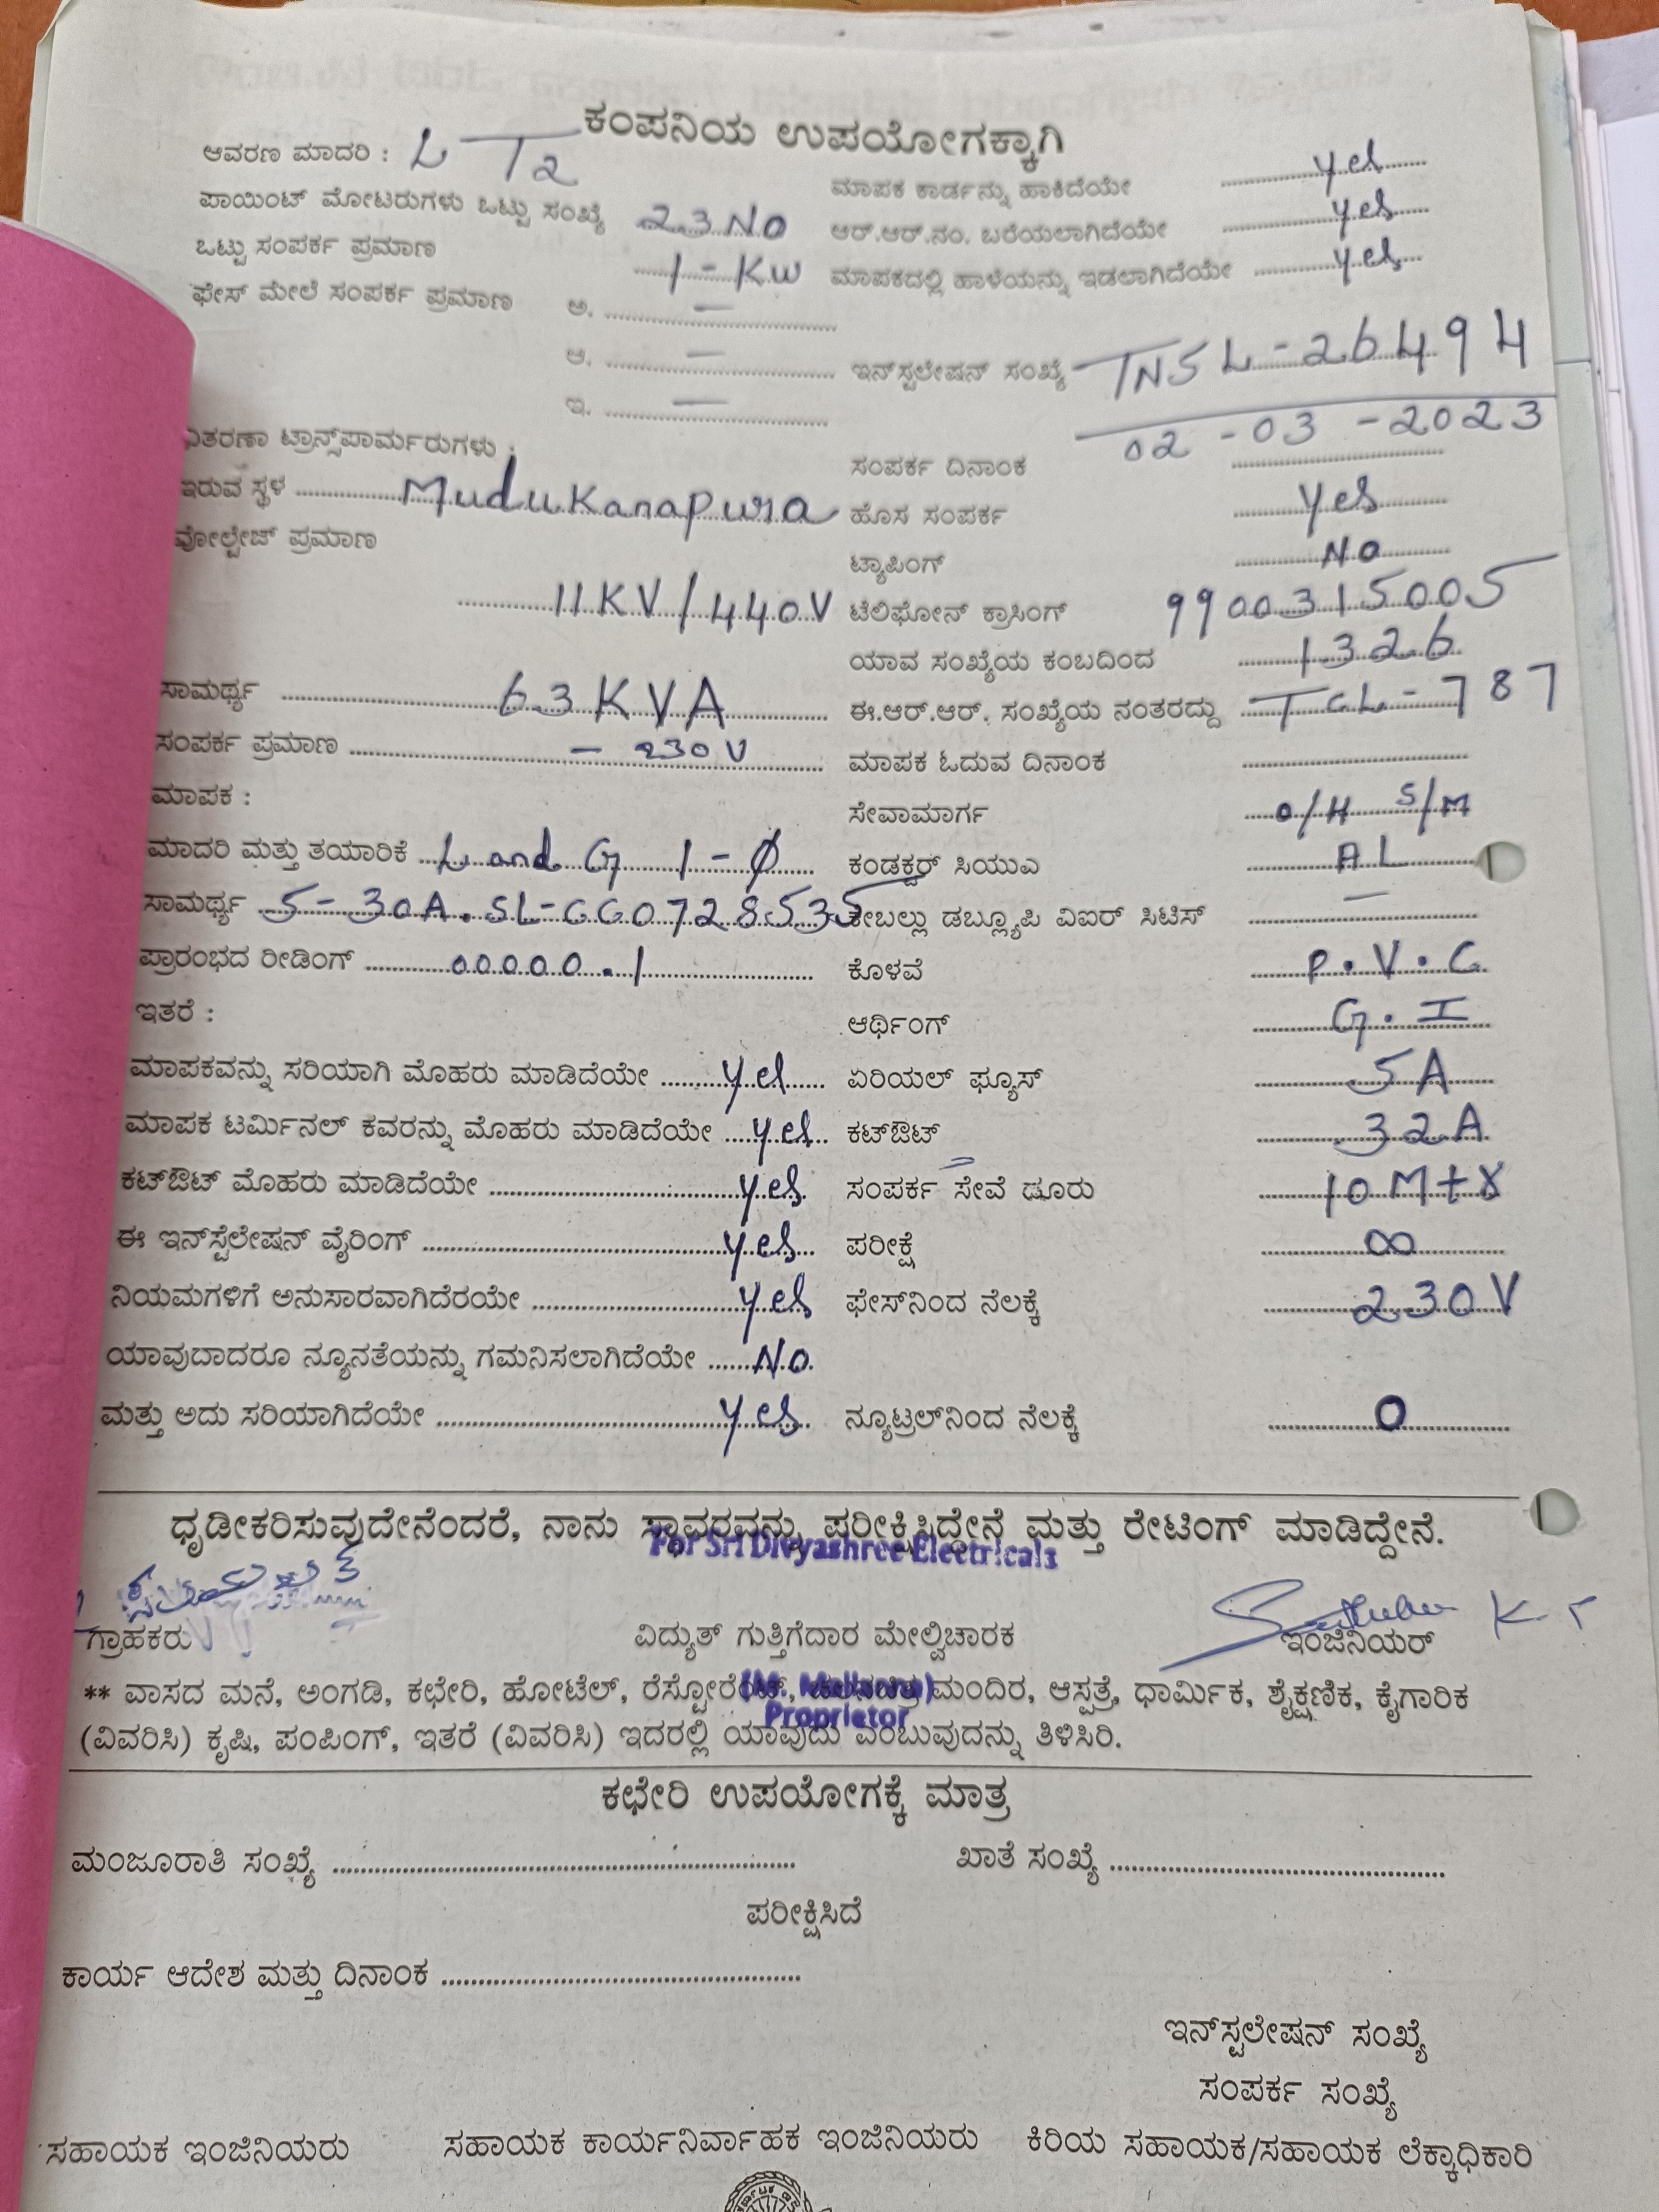 ಕಂಪನಿಯ ಉಪಯೋಗಕ್ಕಾಗಿ
ಆವರಣ ಮಾದರಿ : L T2
ಪಾಯಿಂಟ್ ಮೋಟರುಗಳು ಒಟ್ಟು ಸಂಖ್ಯೆ 23 No
ಒಟ್ಟು ಸಂಪರ್ಕ ಪ್ರಮಾಣ 1 - KW
ಫೇಸ್ ಮೇಲೆ ಸಂಪರ್ಕ ಪ್ರಮಾಣ ಅ. —
ಆ. —
ಇ. —
ವಿತರಣಾ ಟ್ರಾನ್ಸ್‌ಪಾರ್ಮರುಗಳು :
ಇರುವ ಸ್ಥಳ Mudukanapura
ವೋಲ್ಟೇಜ್ ಪ್ರಮಾಣ
11KV/440V
ಸಾಮರ್ಥ್ಯ 63KVA
ಸಂಪರ್ಕ ಪ್ರಮಾಣ - 230V
ಮಾಪಕ :
ಮಾದರಿ ಮತ್ತು ತಯಾರಿಕೆ L and G 1-Ø
ಸಾಮರ್ಥ್ಯ 5-30A. SL-GG0728535
ಪ್ರಾರಂಭದ ರೀಡಿಂಗ್ 00000.1
ಇತರೆ :
ಮಾಪಕವನ್ನು ಸರಿಯಾಗಿ ಮೊಹರು ಮಾಡಿದೆಯೇ yes
ಮಾಪಕ ಟರ್ಮಿನಲ್ ಕವರನ್ನು ಮೊಹರು ಮಾಡಿದೆಯೇ yes
ಕಟ್‌ಔಟ್ ಮೊಹರು ಮಾಡಿದೆಯೇ yes
ಈ ಇನ್‌ಸ್ಟೆಲೇಷನ್ ವೈರಿಂಗ್ yes
ನಿಯಮಗಳಿಗೆ ಅನುಸಾರವಾಗಿದೆರಯೇ yes
ಯಾವುದಾದರೂ ನ್ಯೂನತೆಯನ್ನು ಗಮನಿಸಲಾಗಿದೆಯೇ No
ಮತ್ತು ಅದು ಸರಿಯಾಗಿದೆಯೇ yes
ಮಾಪಕ ಕಾರ್ಡನ್ನು ಹಾಕಿದೆಯೇ yes
ಆರ್.ಆರ್.ನಂ. ಬರೆಯಲಾಗಿದೆಯೇ yes
ಮಾಪಕದಲ್ಲಿ ಹಾಳೆಯನ್ನು ಇಡಲಾಗಿದೆಯೇ yes
ಇನ್‌ಸ್ಟಲೇಷನ್ ಸಂಖ್ಯೆ TNSL-26494
ಸಂಪರ್ಕ ದಿನಾಂಕ 02-03-2023
ಹೊಸ ಸಂಪರ್ಕ Yes
ಟ್ಯಾಪಿಂಗ್ No
ಟೆಲಿಫೋನ್ ಕ್ರಾಸಿಂಗ್ 9900315005
ಯಾವ ಸಂಖ್ಯೆಯ ಕಂಬದಿಂದ 1326
ಈ.ಆರ್.ಆರ್. ಸಂಖ್ಯೆಯ ನಂತರದ್ದು TCL-787
ಮಾಪಕ ಓದುವ ದಿನಾಂಕ
ಸೇವಾಮಾರ್ಗ O/H S/M
ಕಂಡಕ್ಟರ್ ಸಿಯುಎ AL
ಕೇಬಲ್ಲು ಡಬ್ಲ್ಯೂಪಿ ವಿಐರ್ ಸಿಟಿಸ್ —
ಕೊಳವೆ P.V.C
ಆರ್ಥಿಂಗ್ G.I
ಏರಿಯಲ್ ಫ್ಯೂಸ್ 5A
ಕಟ್‌ಔಟ್ 32A
ಸಂಪರ್ಕ ಸೇವೆ ಡೂರು 10 M+8
ಪರೀಕ್ಷೆ ∞
ಫೇಸ್‌ನಿಂದ ನೆಲಕ್ಕೆ 230V
ನ್ಯೂಟ್ರಲ್‌ನಿಂದ ನೆಲಕ್ಕೆ 0
ಧೃಡೀಕರಿಸುವುದೇನೆಂದರೆ, ನಾನು ಸ್ಥಾವರವನ್ನು ಪರೀಕ್ಷಿಸಿದ್ದೇನೆ ಮತ್ತು ರೇಟಿಂಗ್ ಮಾಡಿದ್ದೇನೆ.
For Sri Divyashree Electricals
ಗ್ರಾಹಕರು ವಿದ್ಯುತ್ ಗುತ್ತಿಗೆದಾರ ಮೇಲ್ವಿಚಾರಕ ಇಂಜಿನಿಯರ್
** ವಾಸದ ಮನೆ, ಅಂಗಡಿ, ಕಛೇರಿ, ಹೋಟೆಲ್, ರೆಸ್ಟೋರೆಂಟ್, ಮಂದಿರ, ಆಸ್ಪತ್ರೆ, ಧಾರ್ಮಿಕ, ಶೈಕ್ಷಣಿಕ, ಕೈಗಾರಿಕ
(ವಿವರಿಸಿ) ಕೃಷಿ, ಪಂಪಿಂಗ್, ಇತರೆ (ವಿವರಿಸಿ) ಇದರಲ್ಲಿ ಯಾವುದು ಎಂಬುವುದನ್ನು ತಿಳಿಸಿರಿ.
Proprietor
ಕಛೇರಿ ಉಪಯೋಗಕ್ಕೆ ಮಾತ್ರ
ಮಂಜೂರಾತಿ ಸಂಖ್ಯೆ ಖಾತೆ ಸಂಖ್ಯೆ
ಪರೀಕ್ಷಿಸಿದೆ
ಕಾರ್ಯ ಆದೇಶ ಮತ್ತು ದಿನಾಂಕ
ಇನ್‌ಸ್ಟಲೇಷನ್ ಸಂಖ್ಯೆ
ಸಂಪರ್ಕ ಸಂಖ್ಯೆ
ಸಹಾಯಕ ಇಂಜಿನಿಯರು ಸಹಾಯಕ ಕಾರ್ಯನಿರ್ವಾಹಕ ಇಂಜಿನಿಯರು ಕಿರಿಯ ಸಹಾಯಕ/ಸಹಾಯಕ ಲೆಕ್ಕಾಧಿಕಾರಿ